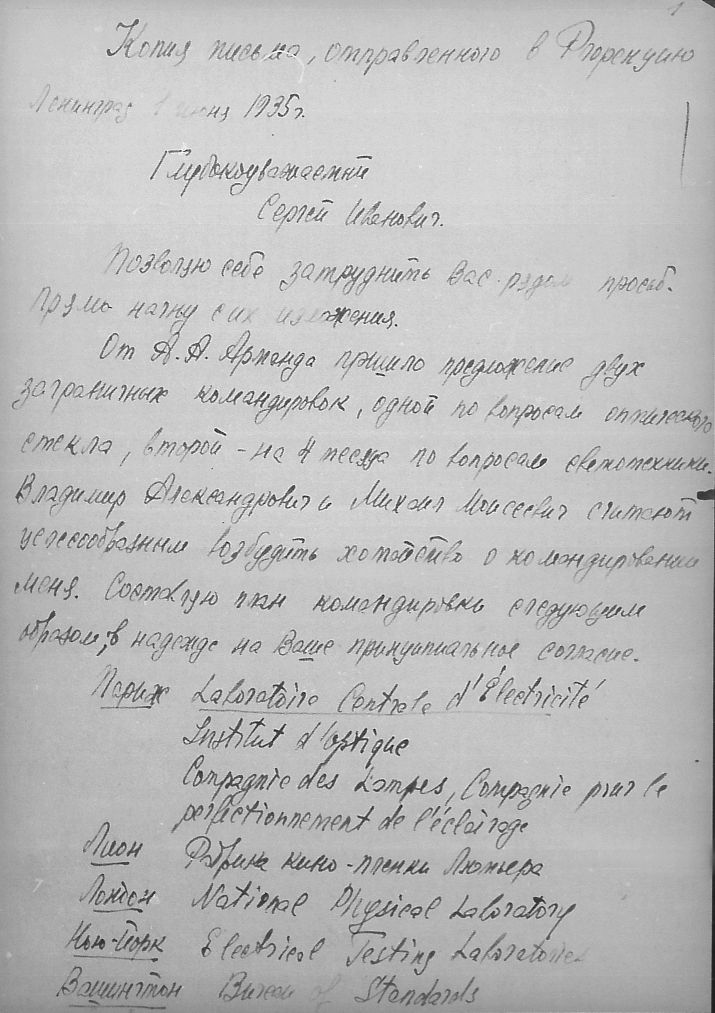 1
Копия письма, отправленного в Флоренцию
Ленинград 1 июня 1935г.
Глубокоуважаемый
Сергей Иванович.
Позволяю себе затруднить Вас рядом просьб.
Прямо начну с их изложения.
От А. А. Арманда пришло предложение двух
заграничных командировок, одной по вопросам оптического
стекла, второй – на 4 месяца по вопросам светотехники.
Владимир Александрович и Михаил Моисеевич считают
целесообразным возбудить хотайство о командировании
меня. Составляю план командировки следующим
образом, в надежде на Ваше принципиальное согласие.
Париж Laboratoire Centrale d'Électricité
Institut d'Optique
Compagnie des Lampes, Compagnie pour le
perfectionnement de l'éclairage
Лион Фабрика кино-пленки Люмьера
Лондон National Physical Laboratory
Нью-Йорк Electrical Testing Laboratories
Вашингтон Bureau of Standards